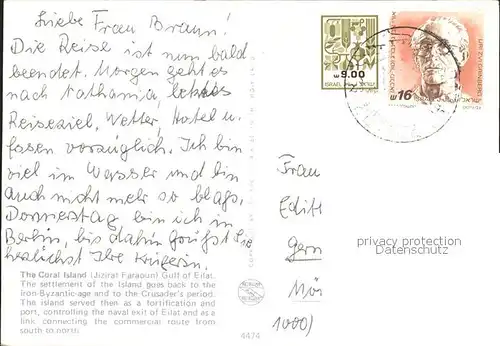 Liebe Frau Braun!
Die Reise ist nun bald
beendet. Morgen geht es
nach Nathania, letztes
Reiseziel. Wetter, Hotel u.
Essen vorzüglich. Ich bin
viel im Wasser und bin
auch nicht mehr so blass.
Donnerstag bin ich in
Berlin, bis dahin grüßt Sie
herzlichst Ihre Krügerin.
The Coral Island (Jizirat Faraoun) Gulf of Eilat.
The settlement of the Island goes back to the
Iron-Byzantic-age and to the Crusader's period.
The island served then as a fortification and
port, controlling the naval exit of Eilat and as a
link connecting the commercial route from
south to north.
4474
9.00
ISRAEL
16
Frau
Edith
privacy protection
Datenschutz
1000/